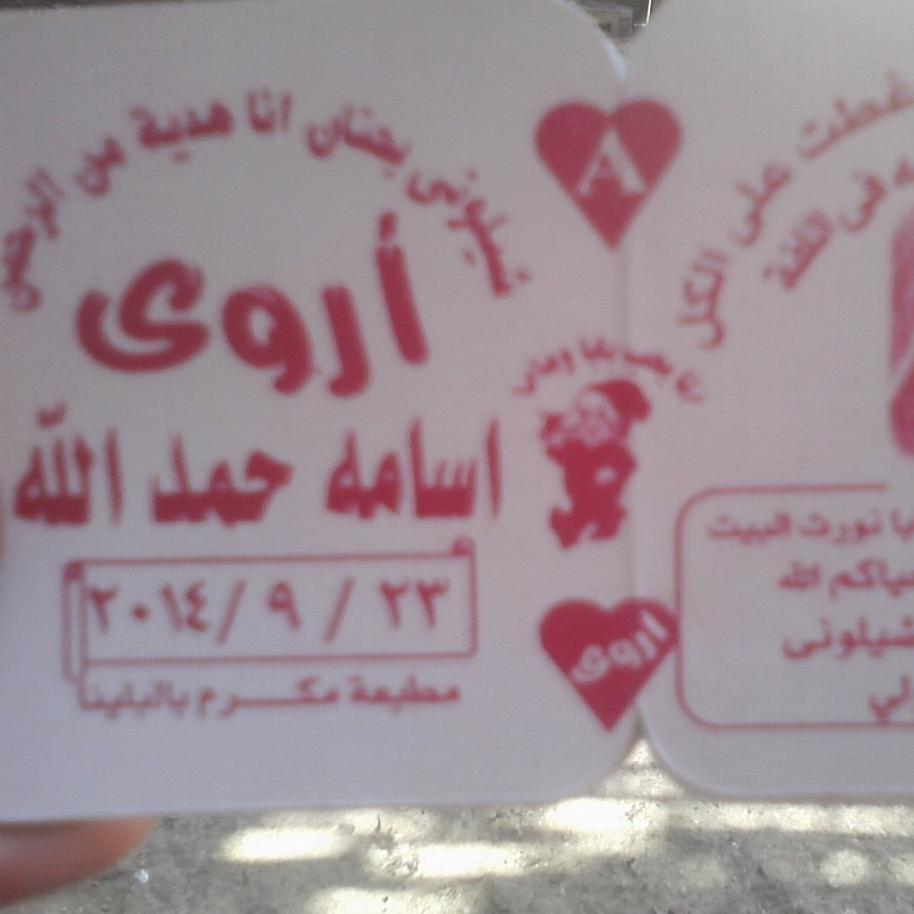 شيلونى بحنان انا هدية من الرحمن
أروى
اسامه حمد الله
٢٣ / ٩ / ٢٠١٤
مطبعة مكرم بالبلينا
A
بابا وماما
أروى
غطت على الكل
فى اللفة
نورت البيت
الله
شيلونى